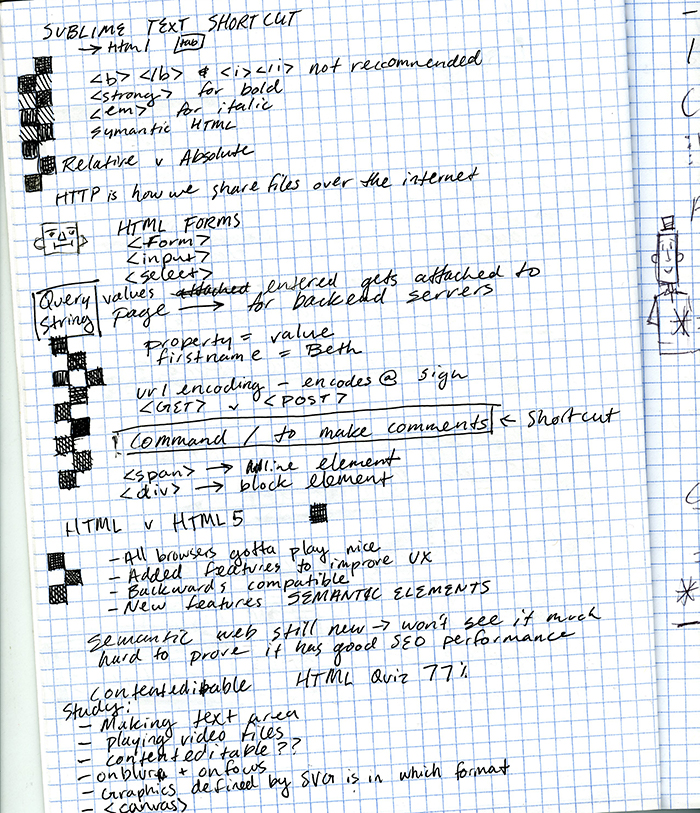 SUBLIME TEXT SHORTCUT
→ Html [tab]
<b> </b> & <i></i> not recommended
<strong> for bold
<em> for italic
symantic HTML
Relative v Absolute
HTTP is how we share files over the internet
HTML FORMS
<form>
<input>
<select>
Query String
values attached entered gets attached to
page → for backend servers
property = value
firstname = Beth
url encoding - encodes @ sign
<GET> v <POST>
! Command / to make comments ← Shortcut
<span> → inline element
<div> → block element
HTML v HTML5
- All browsers gotta play nice
- Added features to improve UX
- Backwards compatible
- New features SEMANTIC ELEMENTS
Semantic web still new → won't see it much
hard to prove it has good SEO performance
Contenteditable HTML Quiz 77%
Study:
- Making text area
- playing video files
- contenteditable??
- onblur + onfocus
- Graphics defined by SVG is in which format
- <canvas>